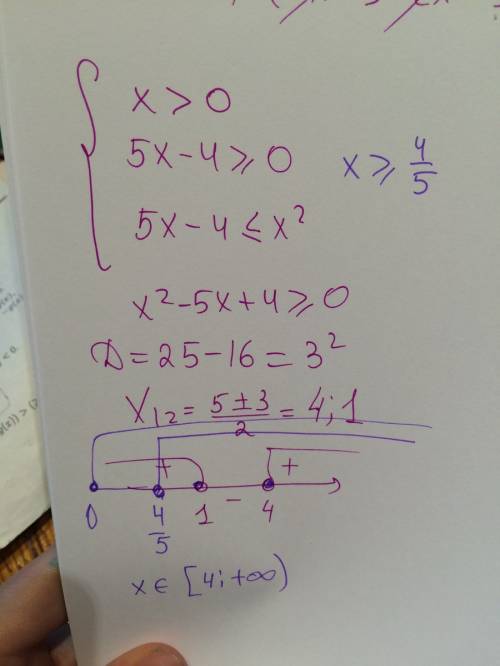 x > 0
5x-4 ⩾ 0 x ⩾ 4/5
5x-4 ≤ x²
x²-5x+4 ⩾ 0
D = 25-16 = 3²
X₁₂ = (5±3)/2 = 4; 1
+ +
0 4/5 1 - 4
x ∈ [4; +∞)